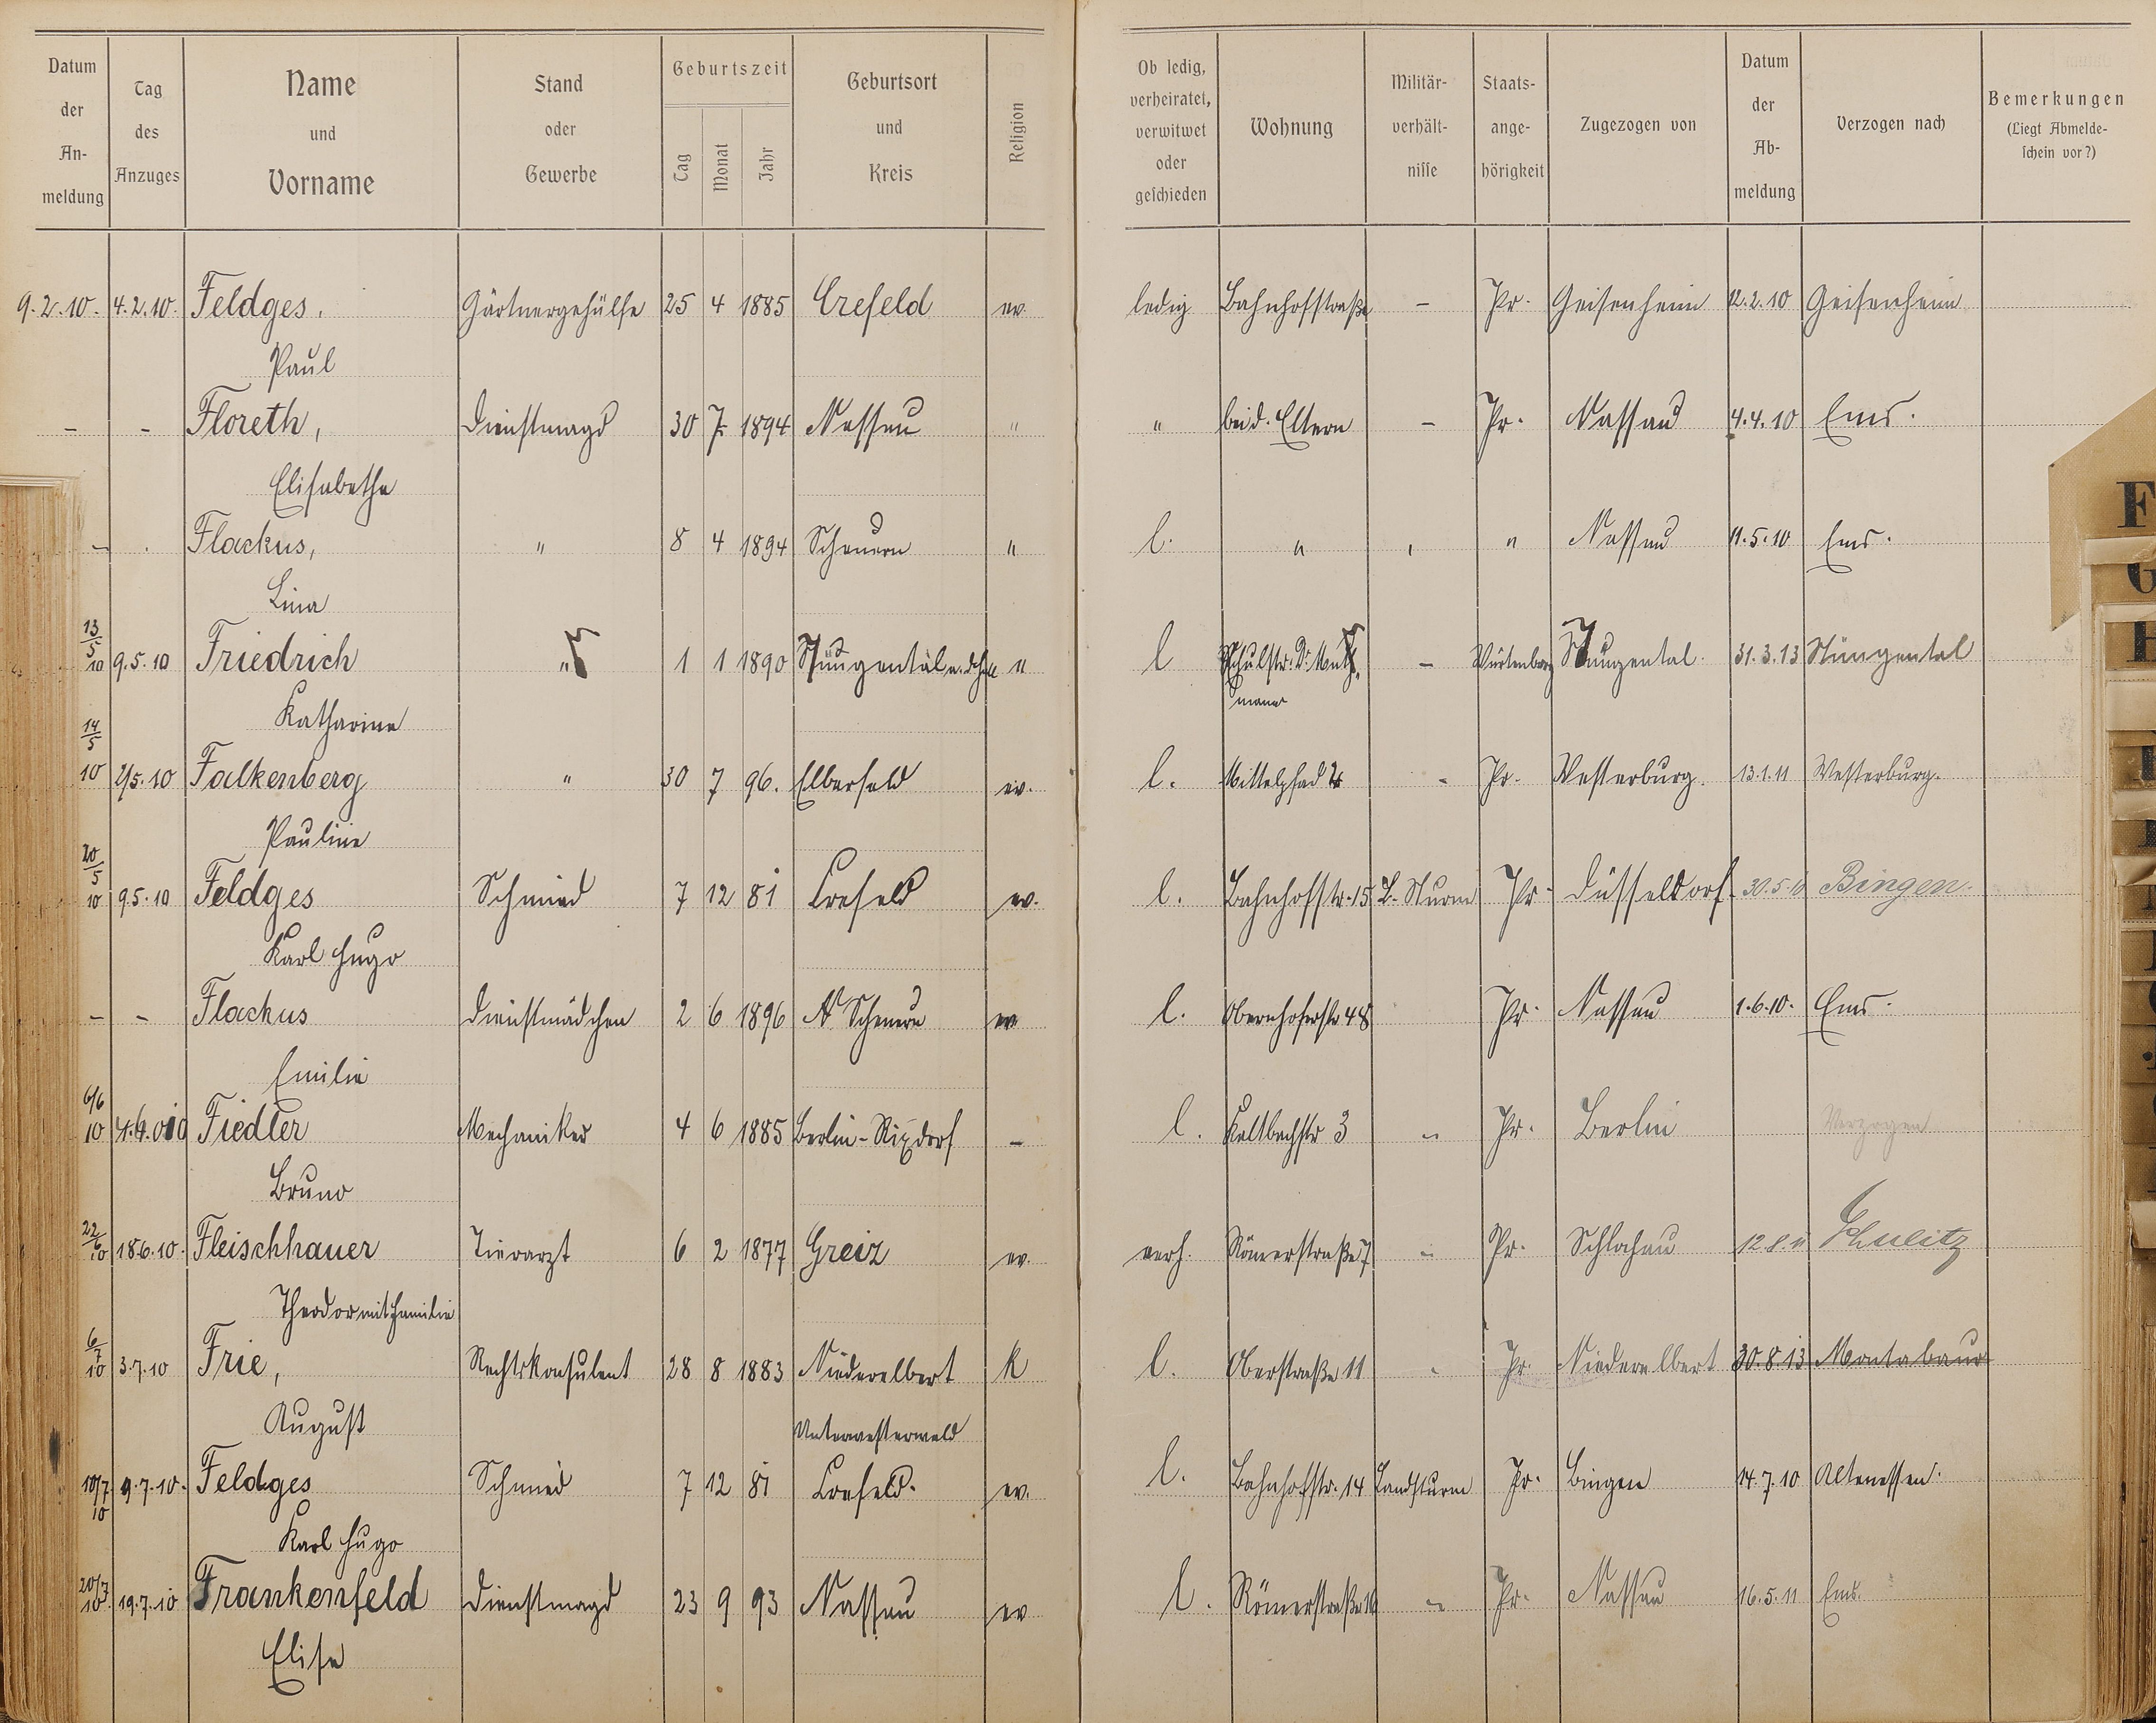 Datum der An-meldung | Tag des Anzuges | Name und Vorname | Stand oder Gewerbe | Geburtszeit Tag Monat Jahr | Geburtsort und Kreis | Religion | Ob ledig, verheiratet, verwitwet oder geschieden | Wohnung | Militär-verhält-nisse | Staats-ange-hörigkeit | Zugezogen von | Datum der Ab-meldung | Verzogen nach | Bemerkungen (Liegt Abmelde-schein vor?)
9.2.10. 4.2.10. Feldges, Gärtnergehülfe 25 4 1885 Crefeld ev. ledig Bahnhofstraße – Pr. Geisenheim 12.2.10 Geisenheim
Paul
– – Floreth, Dienstmagd 30 7 1894 Nassau " " bei d. Eltern – Pr. Nassau 4.4.10 Ems.
Elisabetha
– . Flackus, " 8 4 1894 Scheuern " l. " " Nassau 11.5.10 Ems.
Lina
13/5 10 9.5.10 Friedrich " 1 1 1890 " l Schulstr. Dr. Muth – Würtenberg 31.3.13
mann
Katharina
14/5 10 2/5.10 Falkenberg " 30 7 96. Elberfeld ev. l. Mittelpfad - Pr. Westerburg. 13.1.11 Westerburg.
Pauline
20/5 10 9.5.10 Feldges Schmied 7 12 81 Crefeld ev. l. Bahnhofstr. 15 L. Sturm Pr. Düsseldorf 30.5.10 Bingen.
Karl Hugo
– – Flackus Dienstmädchen 2 6 1896 Scheuern ev l. Obernhoferstr 48 Pr. Nassau 1.6.10. Ems.
Emilie
6/6 10 Fiedler Mechaniker 4 6 1885 Berlin-Rixdorf – l. Kaltbachstr 3 " Pr. Berlin Verzogen
Bruno
22/6 10 18.6.10. Fleischhauer Tierarzt 6 2 1877 Greiz ev. verh. Römerstraße 7 " Pr. Schlochau 12.8.11 Schulitz
Theodor mit Familie
6/7 10 3.7.10 Frie, Rechtskonsulent 28 8 1883 Niederelbert k l. Oberstraße 11 " Pr. Niederelbert 30.8.13 Montabaur
August Unterwesterwald
10/7 10 9.7.10. Feldges Schmied 7 12 81 Crefeld. ev. l. Bahnhofstr. 14 Landsturm Pr. Bingen 14.7.10 Altenessen.
Karl Hugo
20/7 10. 19.7.10 Frankenfeld Dienstmagd 23 9 93 Nassau ev l. Römerstraße 16 " Pr. Nassau 16.5.11 Ems.
Elisa
F
G
H